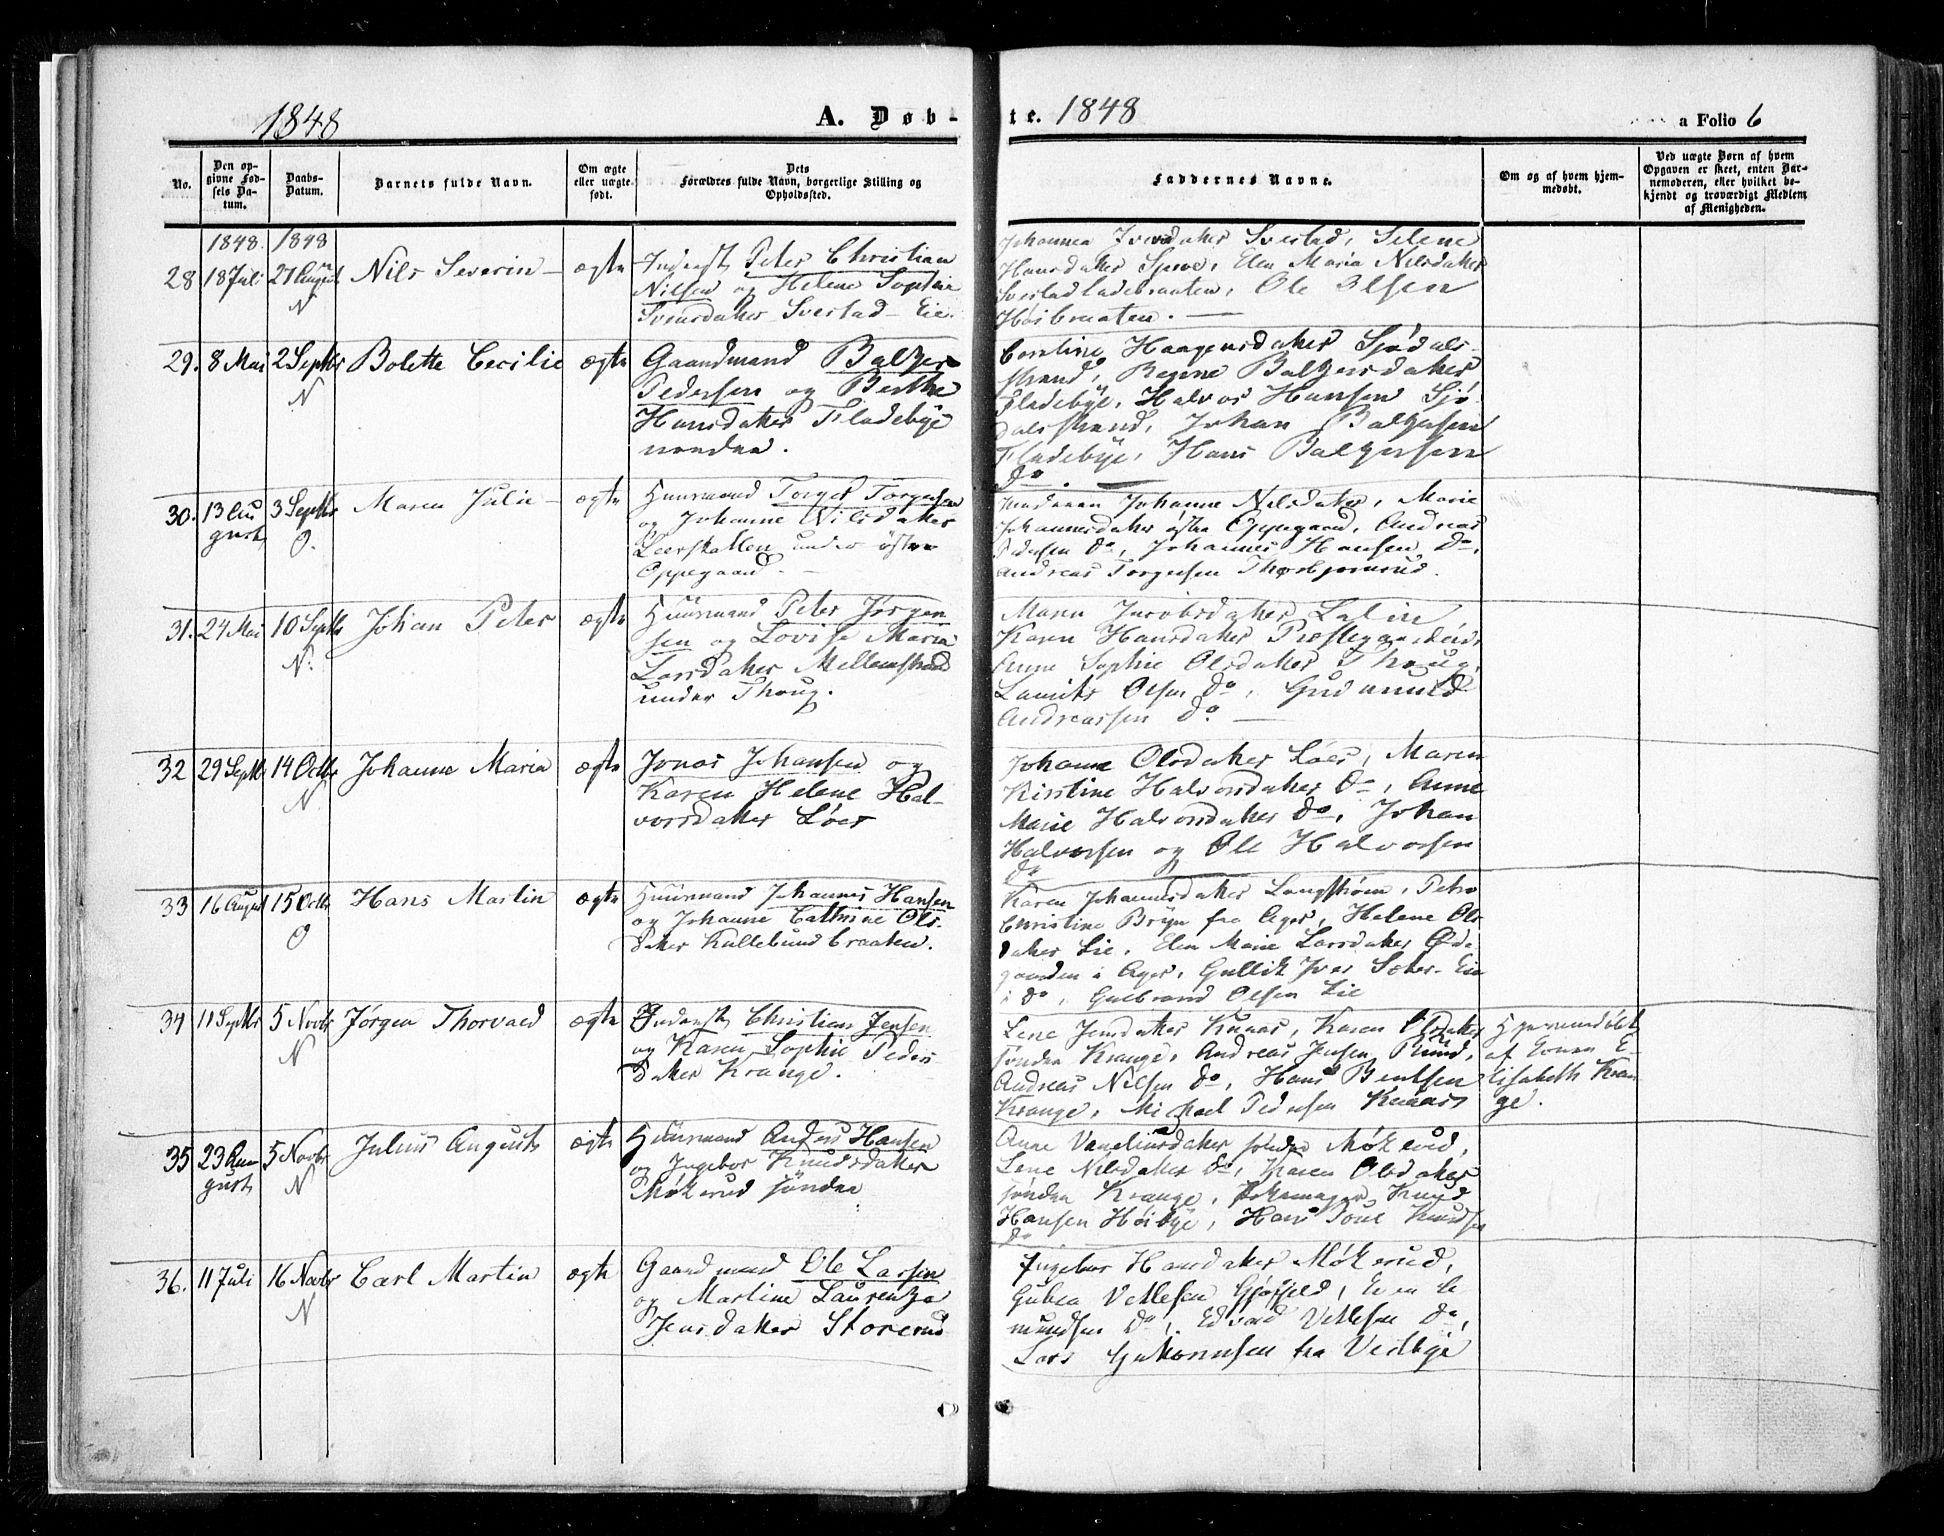 1848
A. Døb-
te. 1848
a Folio 6
No.
Den op-
givne Fød-
sels Da-
tum.
Daabs-
Datum.
Barnets fulde Navn.
Om ægte
eller uægte
født.
Dets
Forældres fulde Navn, borgerlige Stilling og
Opholdssted.
Faddernes Navne.
Om og af hvem hjem-
medøbt.
Ved uægte Børn af hvem
Opgaven er skeet, enten Bar-
nemoderen, eller hvilket be-
kjendt og troværdigt Medlem
af Menigheden.
1848. 1848
28 18 Juli 27 August N Nils Severin ægte
Inderst Peter Christian
Nilsen og Helene Sophie
Svensdatter Svestad Eie.
Johannea Iversdatter Svestad, Selene
Hansdatter Spro, Elen Maria Nilsdatter
Svestadladebraaten, Ole Olsen
Høibraaten.
29. 8 Mai 2 Septbr N Bolette Cecilie ægte
Gaardmand Baltzer
Pedersen og Berthe
Hansdatter Fladebye
nordre.
Caroline Haagensdatter Sjødals-
strand, Regine Baltzersdatter
Fladebye, Halvor Hansen Sjø-
dalsstrand, Johan Baltzersen
Fladebye, Hans Baltzersen
do.
30. 13 Au
gust 3 Septbr O. Maren Julie ægte
Huusmand Torger Torgersen
og Johanne Nilsdatter
Leerskallen under østre
Oppegaard.
Johanne Nilsdatter, Marie
Johannesdatter østre Oppegaard, Andreas
Pedersen do, Johannes Hansen do,
Andreas Torgersen Thorbjørnrud.
31. 24 Mai 10 Septbr N. Johan Peter ægte
Huusmand Peter Jørgen
sen og Lovise Maria
Larsdatter Mellemstrand
under Thoug.
Maren Jacobsdatter
Karen Hansdatter
Anne Sophie Olsdatter Thoug,
Laurits Olsen do, Gudmund
Andreassen do.
32 29 Septbr 14 Octbr N. Johanne Maria ægte
Jonas Johansen og
Karen Helene Hal-
vorsdatter Løes
Johanne Olsdatter Løes, Maren
Kirstine Halvorsdatter do, Anne
Marie Halvorsdatter do, Johan
Halvorsen og Ole Halvorsen
do
33 16 August 15 Octbr O Hans Martin ægte
Huusmand Johannes Hansen
og Johanne Cathrine Ols-
datter Kullebundbraaten.
Karen Johannesdatter Langstrøm, Petro
Christine Bryn fra Ager, Helene Ols
datter Lie, Elen Marie Larsdatter Øde-
gaarden i Ager, Gullik Iver Sæter-Eie
i do, Gulbrand Olsen Lie
34 11 Septbr 5 Novbr N Jørgen Thorvald ægte
Inderst Christian Jensen
og Karen Sophie Peders-
datter Krange.
Lene Jensdatter Knaar, Karen Olsdatter
søndre Krange, Andreas Jensen Rud,
Andreas Nilsen do, Hans Bentsen
Krange, Michael Pedersen Knaars
Hjemmedøbt
af Konen E-
lisabeth Kran
ge.
35 23 Au
gust 5 Novbr N Julius August ægte
Huusmand Anders Hansen
og Ingebor Knudsdatter
Møkerud søndre
Ane Vangeliusdatter søndre Møkerud,
Lene Nilsdatter do, Karen Olsdatter
søndre Krange, Skomager Knud
Hansen Høibye, Hans Poul Knudsen
do
36. 11 Juli 16 Novbr N Carl Martin ægte
Gaardmand Ole Larsen
og Martine Laurenza
Jensdatter Storerud
Ingebor Hansdatter Møkerud,
Gubea Vetlesen Gjøsfjeld,
do, Edvard Vetlesen do,
Lars Guttormsen fra Vestbye